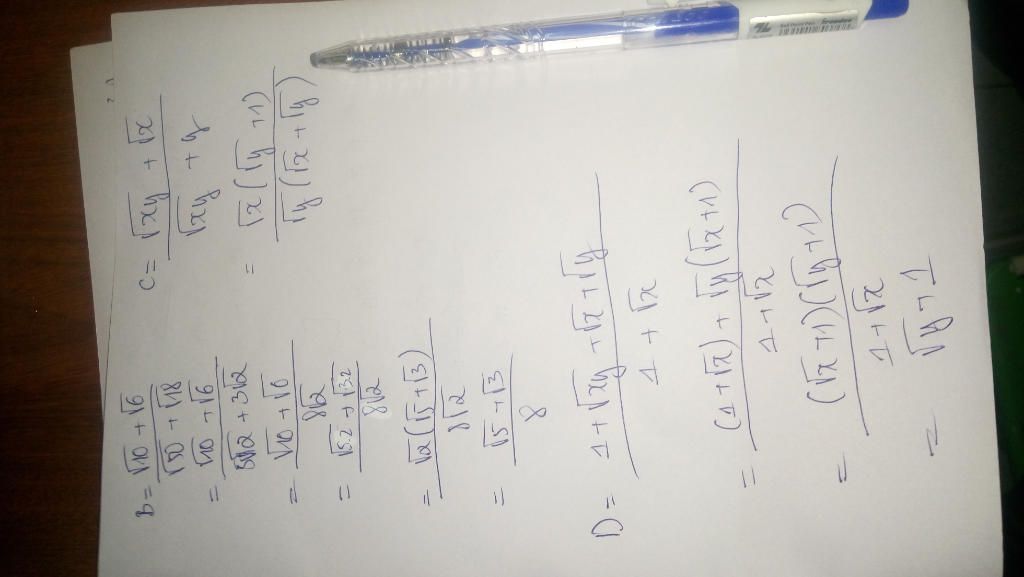 B = \frac{\sqrt{10} + \sqrt{6}}{\sqrt{50} + \sqrt{18}}
= \frac{\sqrt{10} + \sqrt{6}}{5\sqrt{2} + 3\sqrt{2}}
= \frac{\sqrt{10} + \sqrt{6}}{8\sqrt{2}}
= \frac{\sqrt{5.2} + \sqrt{3.2}}{8\sqrt{2}}
= \frac{\sqrt{2}(\sqrt{5} + \sqrt{3})}{8\sqrt{2}}
= \frac{\sqrt{5} + \sqrt{3}}{8}
C = \frac{\sqrt{xy} + \sqrt{x}}{\sqrt{xy} + y}
= \frac{\sqrt{x}(\sqrt{y} + 1)}{\sqrt{y}(\sqrt{x} + \sqrt{y})}
D = \frac{1 + \sqrt{xy} + \sqrt{x} + \sqrt{y}}{1 + \sqrt{x}}
= \frac{(1 + \sqrt{x}) + \sqrt{y}(\sqrt{x} + 1)}{1 + \sqrt{x}}
= \frac{(\sqrt{x} + 1)(\sqrt{y} + 1)}{1 + \sqrt{x}}
= \sqrt{y} + 1